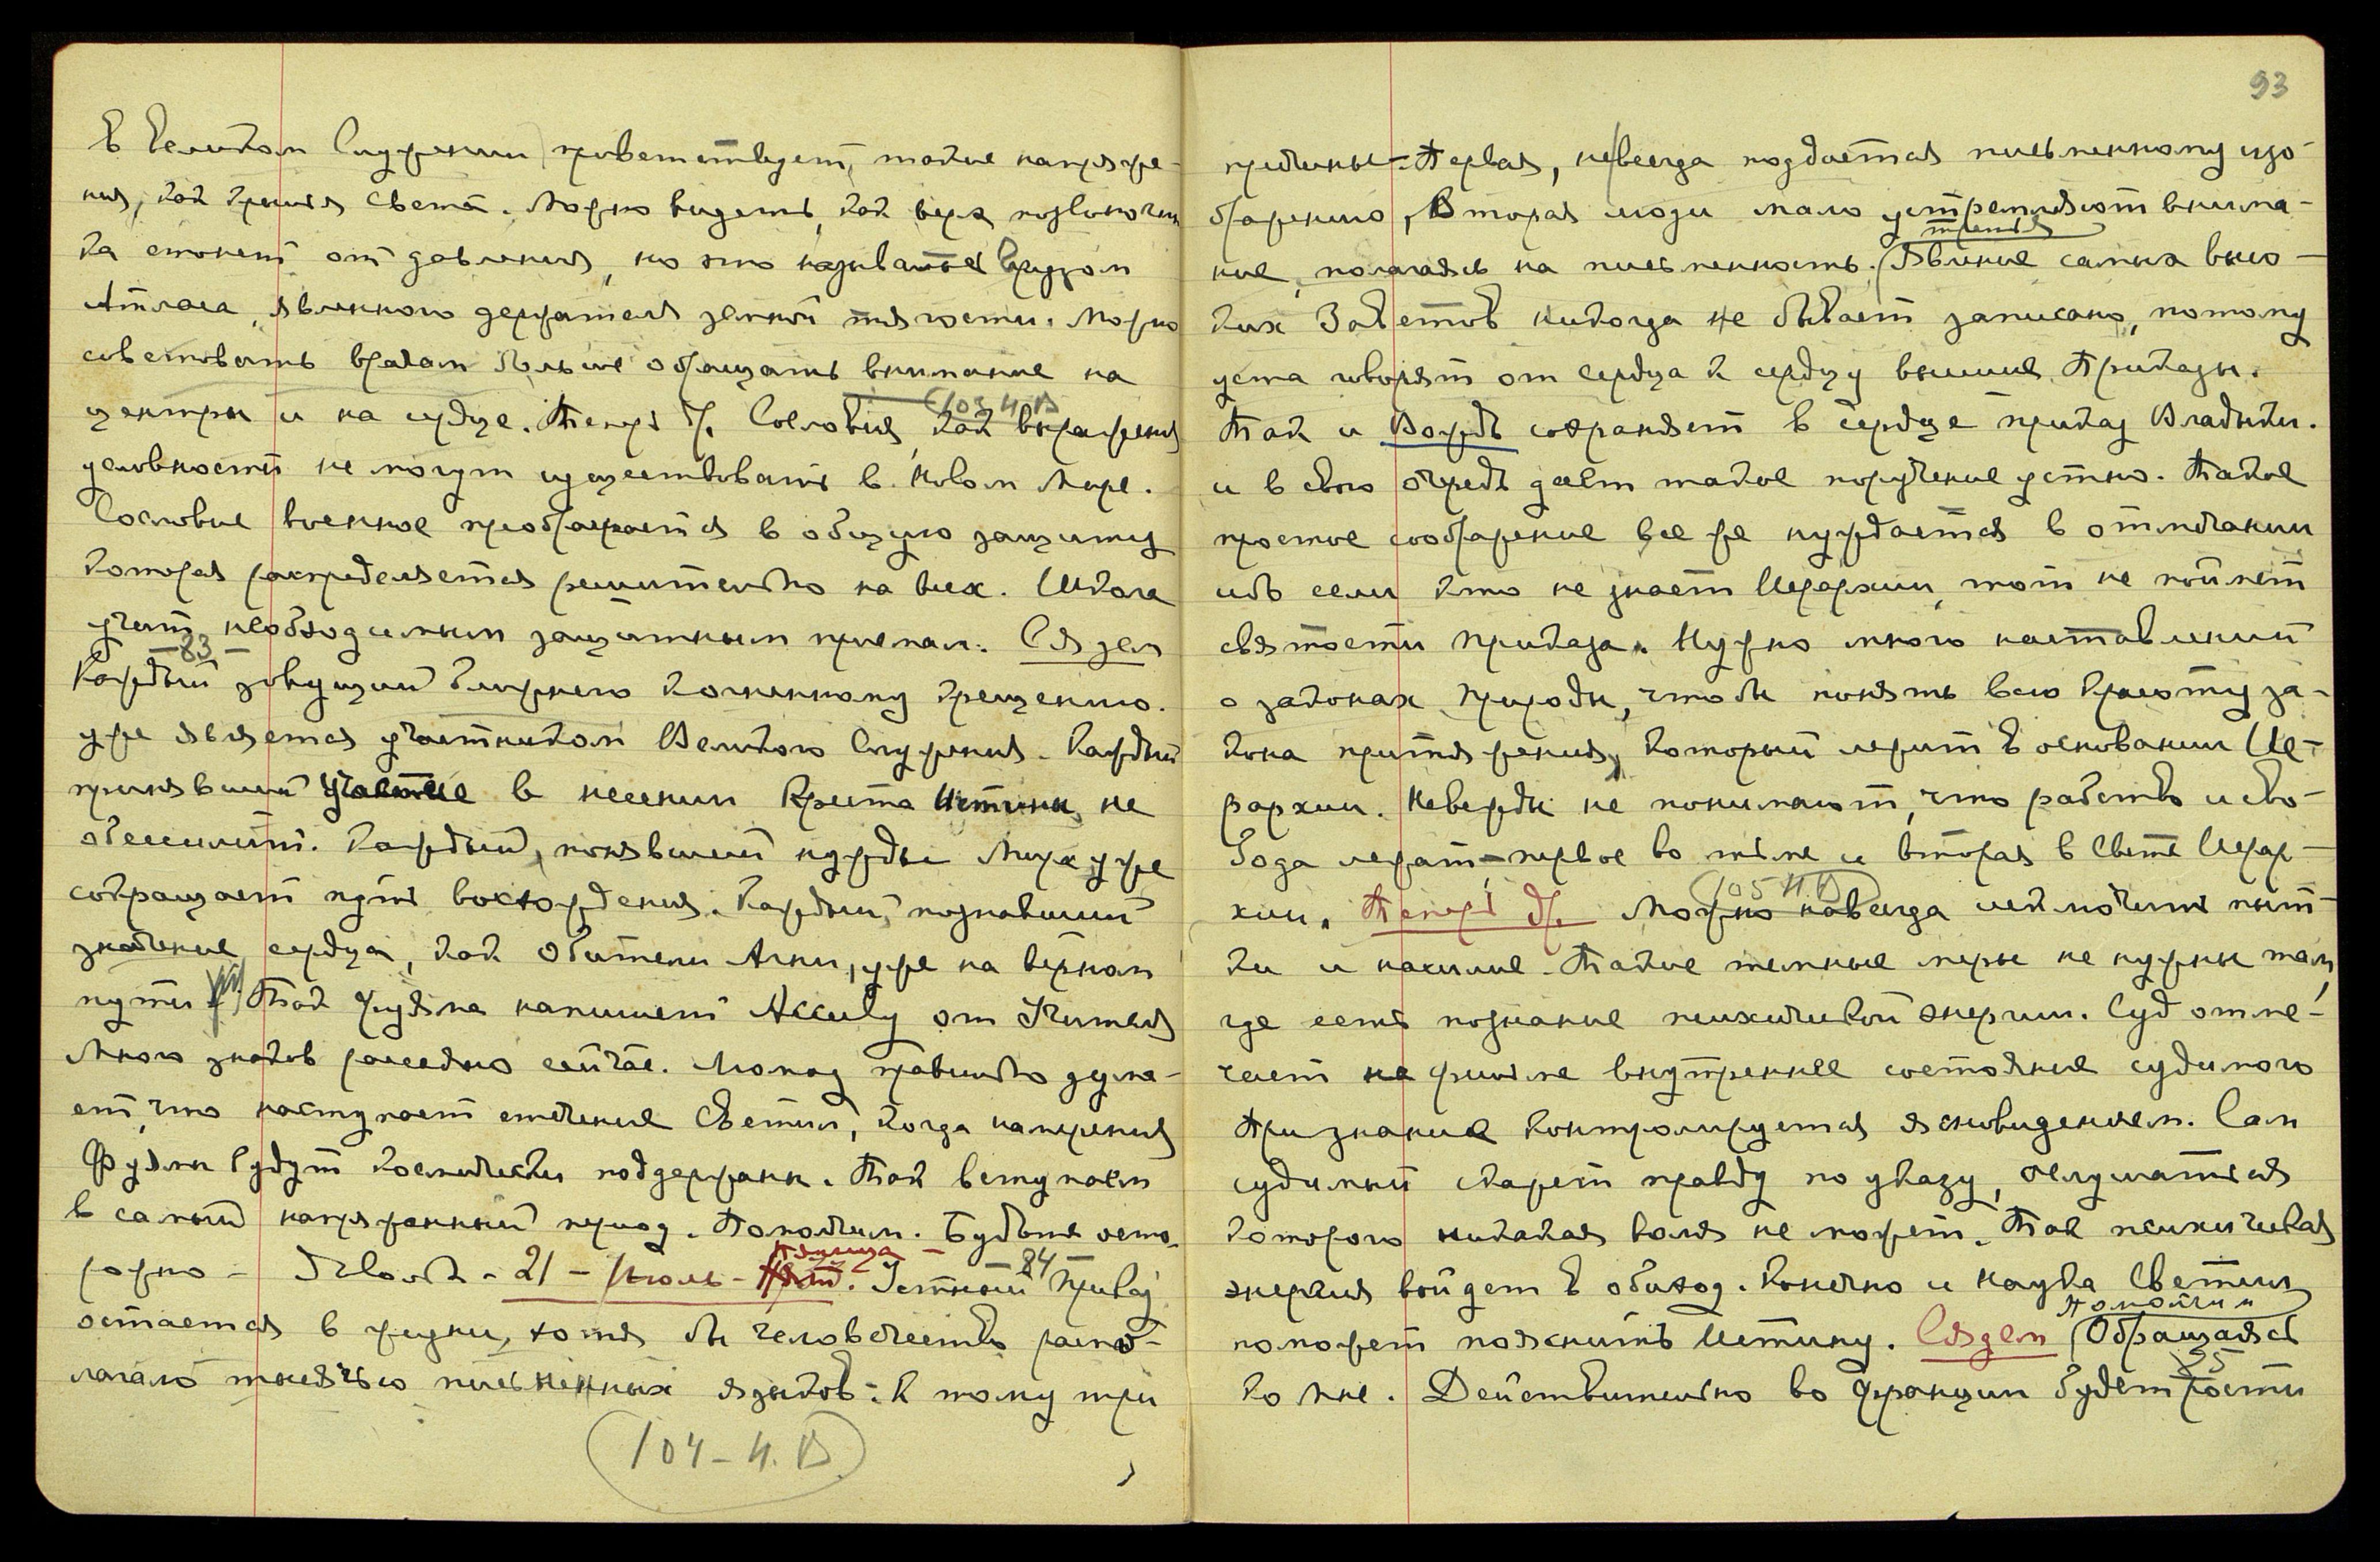 В Великом Служении приветствует, такие напряже-
ния, как крылья света. Можно видеть, как верх позвоночни
ка стонет от давления, но это называется Грузом
Атласа, явленного держателя земной тягости. Можно
советовать врачам больше обращать внимание на
центры и на сердце. Теперь др. Сословия, как выражения
103 Н.В
условности не могут существовать в Новом Мире.
Сословие военное преображается в общую защиту
которая распределяется решительно на всех. Школа
учит необходимым защитным приемам. Сяздем
– 83 –
Каждый зовущий ближнего к огненному крещению.
уже является участником Великого Служения. Каждый
принявший участие в несении Креста Истины, не
обессилит. Каждый, понявший нужды Мира уже
сокращает путь восхождения. Каждый, познавший
значение сердца, как обители Агни, уже на верном
пути. Так Фуяма напишет от Учителя
Много знаков рассеяно сейчас. Люмоу правильно дума-
ет, что наступает стечение Светил, когда намерения
Фуямы будут космически поддержаны. Так вступаем
в самый напряженный период. Помолчим. Будьте осто-
рожно – – 21 – Июль – Пятница – 84 Устный Приказ
остается в жизни, хотя бы человечество распо-
лагало тысячью письменных языков. К тому три
104 – Н.В.
93
причины – Первая, не всегда поддается письменному изо-
бражению, Вторая люди мало устремляют внима-
ние, полагаясь на письменность. Явление самых высо-
третья
ких Заветов никогда не бывает записано, потому
уста говорят от сердца к сердцу высшие Приказы.
Так и Вождь сохраняет в сердце приказ Владыки.
и в свою очередь дает такое поручение устно. Такое
простое соображение все же нуждается в отмечании
ибо если кто не знает Иерархии, тот не поймет
святости Приказа. Нужно много наставлений
о законах Природы, чтобы понять всю Красоту за-
кона притяжения, который лежит в основании Ие-
рархии. Невежды не понимают, что рабство и сво-
бода лежат – первое во тьме и вторая в Свете Иерар-
хии. Теперь др. Можно навсегда исключить пыт-
105 Н.В
ки и насилие. Такие темные меры не нужны там,
где есть познание психической энергии. Суд отме-
чает не физме внутреннее состояние судимого
Признание контролируется ясновидением. Сам
судимый скажет правду по указу, ослушаться
которого никакая воля не может. Так психическая
энергия войдет в обиход. Конечно и Наука Светил
поможет пояснить Истину. Сяздем Обращаясь
Помолчим
ко мне. Действительно во Франции будет расти
85